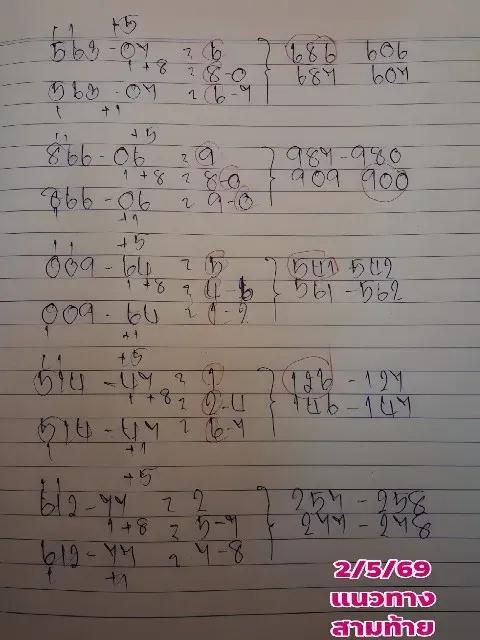 +5
563-07 = 6 } 686 606
1 +8 = 8-0 687 607
563-07 = 6-7
1 +1
+5
866-06 = 9 } 989-980
1 +8 = 8-0 909 900
866-06 = 9-0
1 +1
+5
009-64 = 5 } 541 542
1 +8 = 4-6 561-562
009-64 = 1-2
1 +1
+5
514-47 = 1 } 126-127
1 +8 = 2-4 146-147
514-47 = 6-7
1 +1
+5
612-77 = 2 } 257-258
1 +8 = 5-7 277-278
612-77 = 7-8
1 +1
2/5/69
แนวทาง
สามท้าย